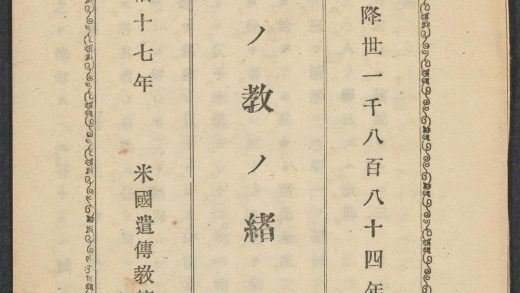 降世一千八百八十四年
ノ教ノ緒
十七年　米國遣傳教